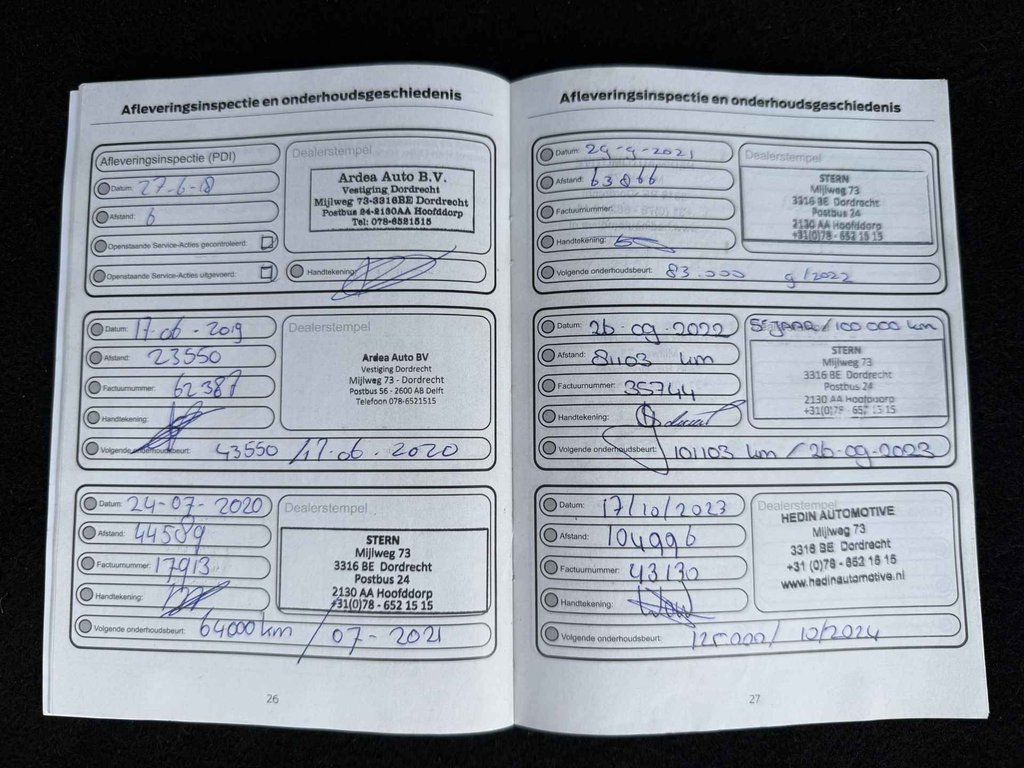 Afleveringsinspectie en onderhoudsgeschiedenis
Afleveringsinspectie (PDI)
Datum: 27-6-18
Afstand: 6
Openstaande Service-Acties gecontroleerd:
Openstaande Service-Acties uitgevoerd:
Dealerstempel
Ardea Auto B.V.
Vestiging Dordrecht
Mijlweg 73-3316BE Dordrecht
Postbus 24-2130AA Hoofddorp
Tel: 078-6521515
Handtekening:
Datum: 17-06-2019
Afstand: 23550
Factuurnummer: 62387
Handtekening:
Dealerstempel
Ardea Auto BV
Vestiging Dordrecht
Mijlweg 73 - Dordrecht
Postbus 56 - 2600 AB Delft
Telefoon 078-6521515
Volgende onderhoudsbeurt: 43550 / 17-06-2020
Datum: 24-07-2020
Afstand: 44589
Factuurnummer: 17913
Handtekening:
Dealerstempel
STERN
Mijlweg 73
3316 BE Dordrecht
Postbus 24
2130 AA Hoofddorp
+31(0)78 - 652 15 15
Volgende onderhoudsbeurt: 64000 km / 07-2021
26
Afleveringsinspectie en onderhoudsgeschiedenis
Datum: 29-9-2021
Afstand: 63866
Factuurnummer:
Handtekening:
Dealerstempel
STERN
Mijlweg 73
3316 BE Dordrecht
Postbus 24
2130 AA Hoofddorp
+31(0)78 - 652 15 15
Volgende onderhoudsbeurt: 83.000 9/2022
Datum: 26-09-2022
Afstand: 81103 km
Factuurnummer: 35744
Handtekening:
5e JAAR / 100 000 km
STERN
Mijlweg 73
3316 BE Dordrecht
Postbus 24
2130 AA Hoofddorp
+31(0)78 - 652 15 15
Volgende onderhoudsbeurt: 101103 km / 26-09-2023
Datum: 17/10/2023
Afstand: 104996
Factuurnummer: 43130
Handtekening:
Dealerstempel
HEDIN AUTOMOTIVE
Mijlweg 73
3316 BE Dordrecht
+31 (0)78 - 652 15 15
www.hedinautomotive.nl
Volgende onderhoudsbeurt: 125.000/ 10/2024
27